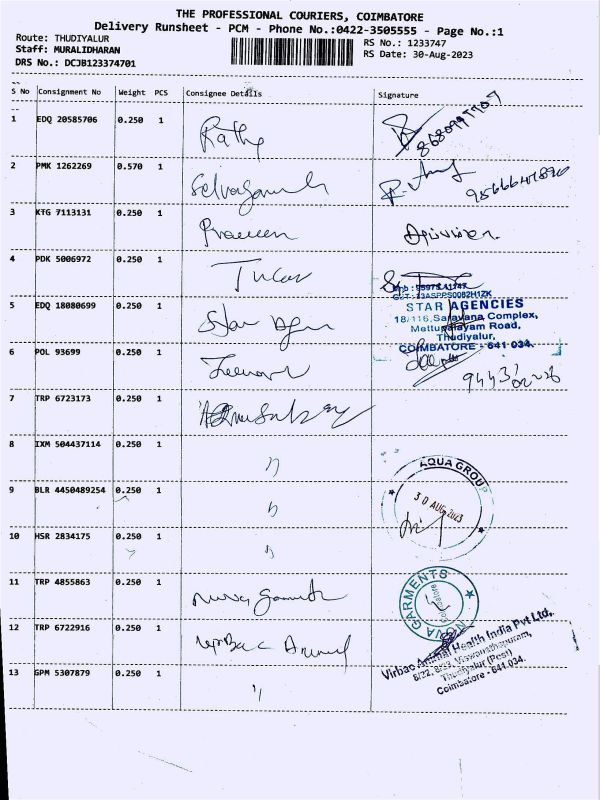 THE PROFESSIONAL COURIERS, COIMBATORE
Delivery Runsheet - PCM - Phone No.:0422-3505555 - Page No.:1
Route: THUDIYALUR
RS No.: 1233747
Staff: MURALIDHARAN
RS Date: 30-Aug-2023
DRS No.: DCJB123374701
S No Consignment No Weight PCS Consignee Details Signature
1 EDQ 20585706 0.250 1 Rathy
2 PMK 1262269 0.570 1 Selvaganesh
3 KTG 7113131 0.250 1 Praveen
4 PDK 5006972 0.250 1
5 EDQ 18080699 0.250 1 Star Agen
STAR AGENCIES
18/116, Saravana Complex,
Mettupalayam Road,
Thudiyalur,
COIMBATORE - 641 034.
6 POL 93699 0.250 1
7 TRP 6723173 0.250 1
8 IXM 504437114 0.250 1 "
AQUA GROUP
9 BLR 4450489254 0.250 1 "
30 AUG 2023
10 HSR 2834175 0.250 1 "
11 TRP 4855863 0.250 1
GARMENTS
Coimbatore
12 TRP 6722916 0.250 1 Virbac Animal
Virbac Animal Health India Pvt Ltd.,
Viswanathapuram,
Thudiyalur (Post)
Coimbatore - 641 034.
13 GPM 5307879 0.250 1 "